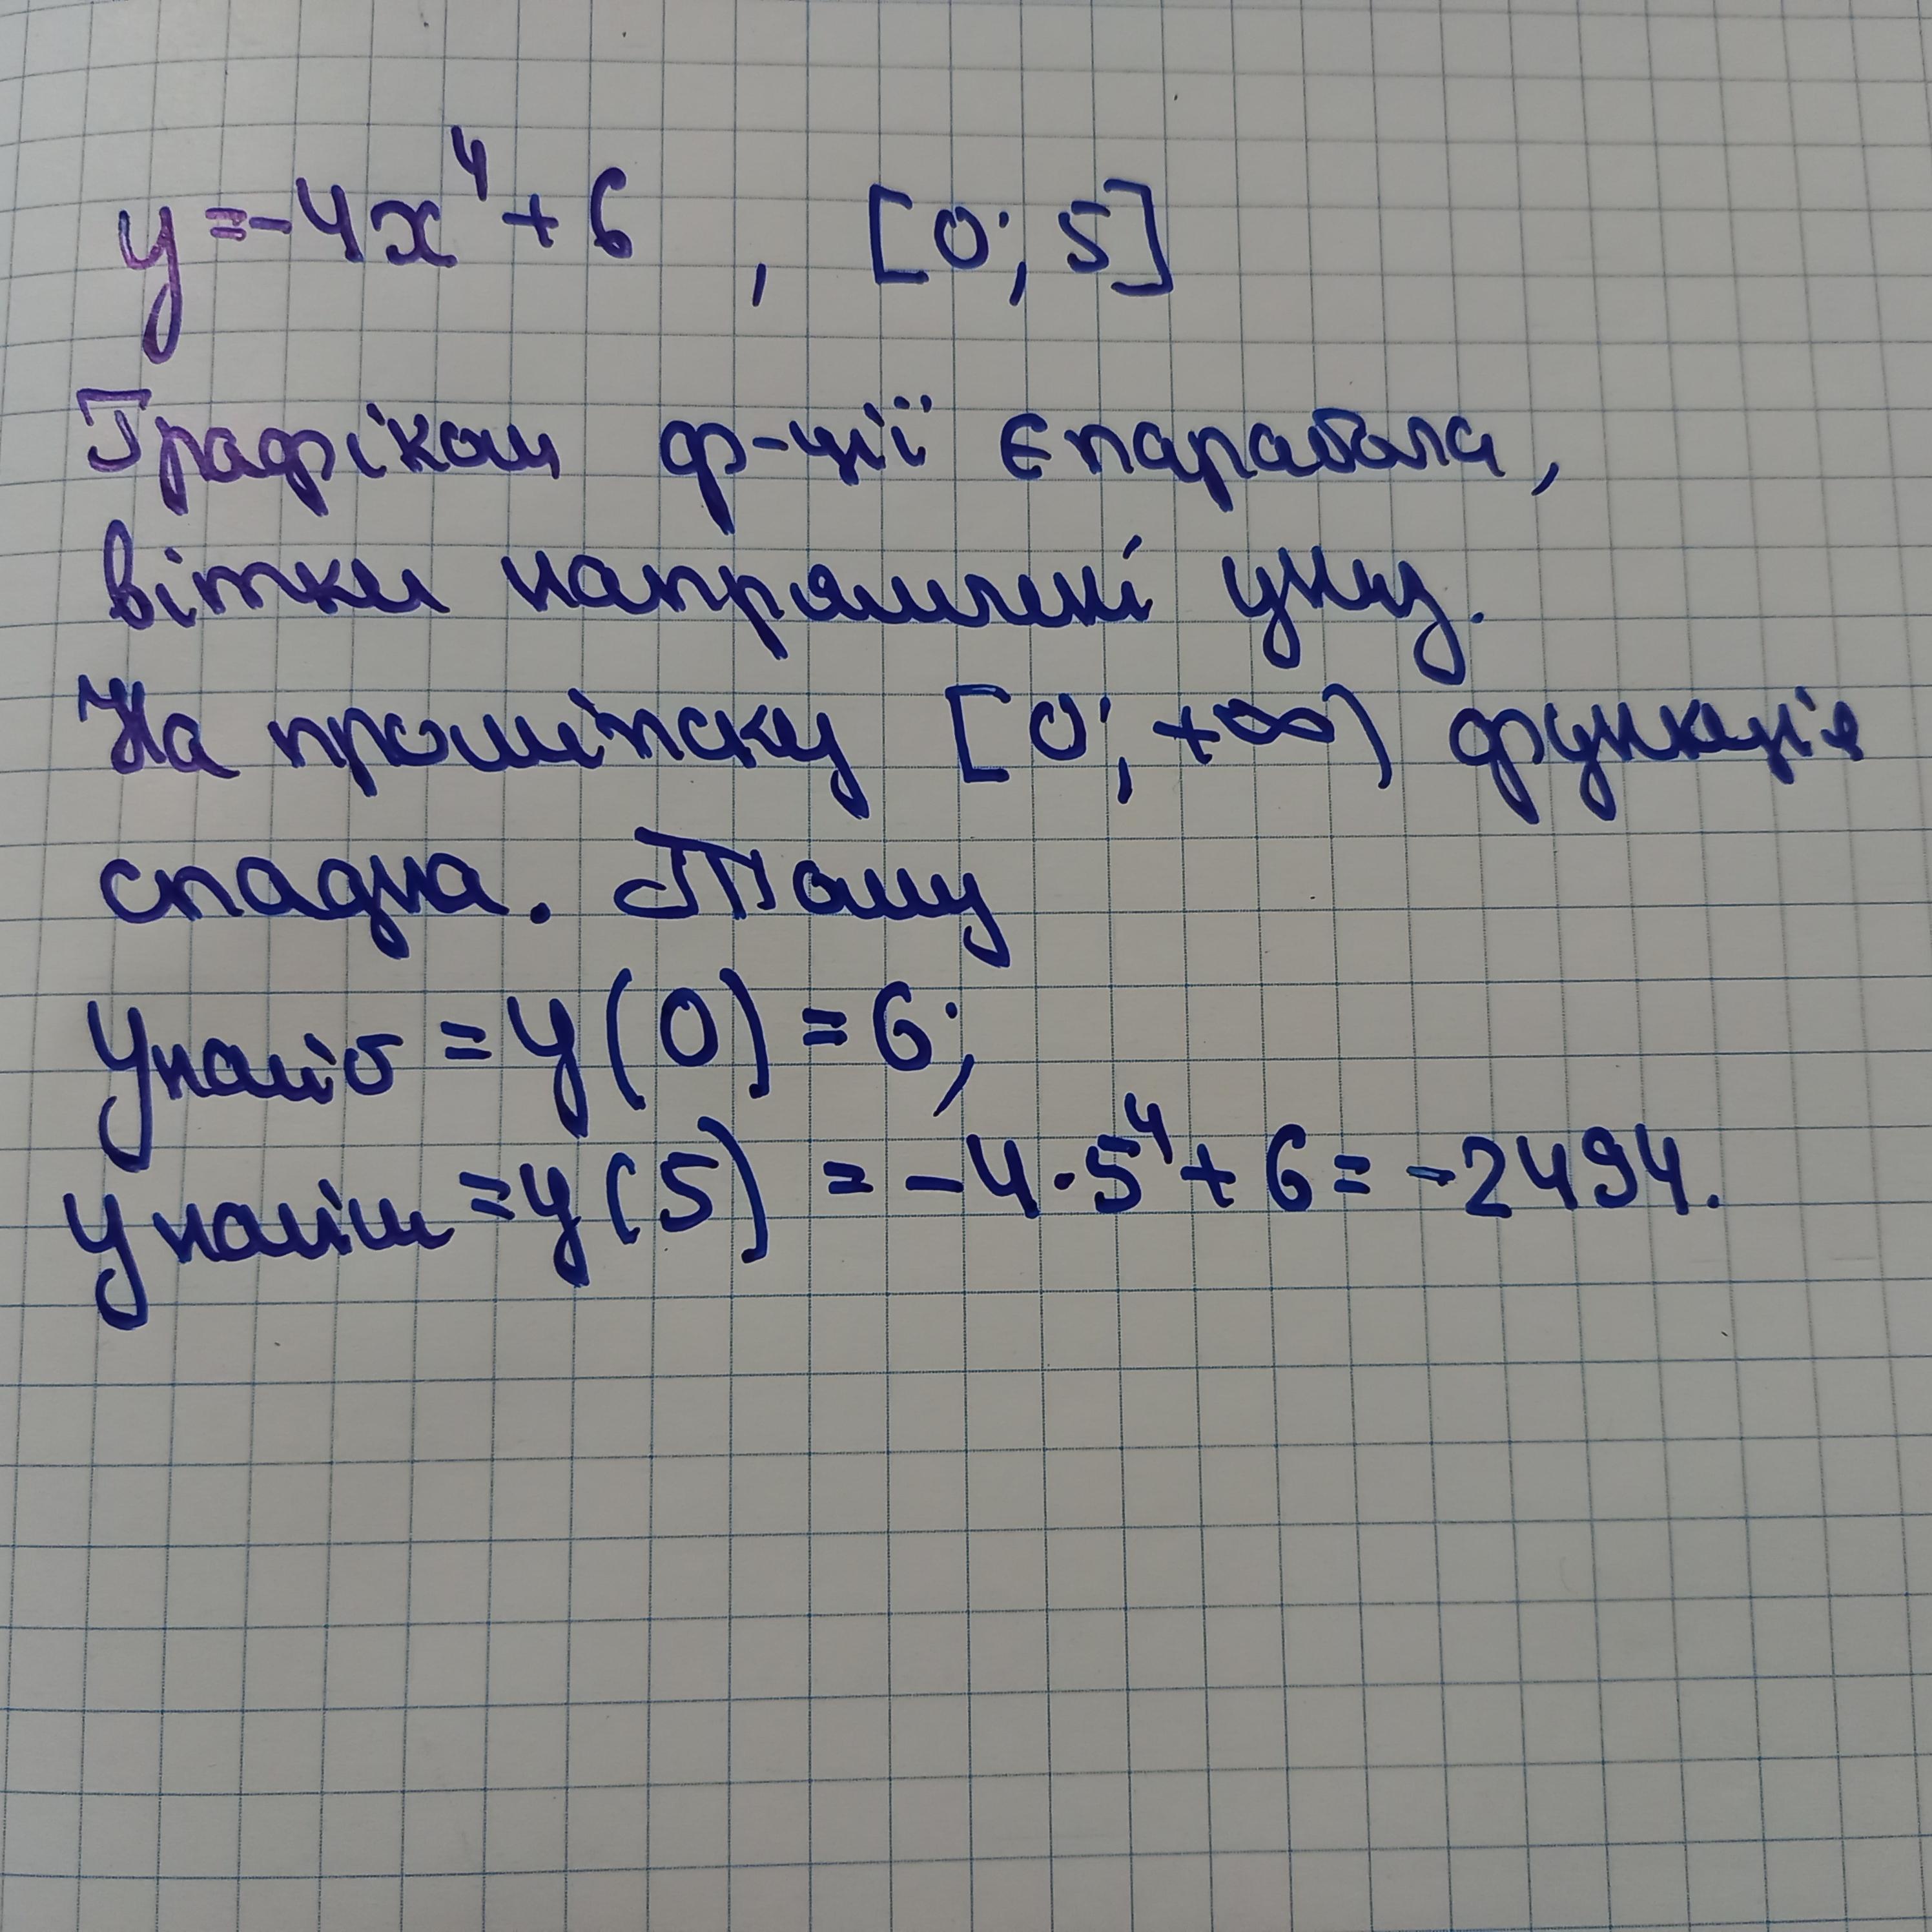 y=-4x⁴+6 , [0; 5]
Графіком ф-ції є парабола,
вітки напрямлені униз.
На проміжку [0; +∞) функція
спадна. Тому
yнайб = y(0) = 6;
yнайм = y(5) = -4·5⁴+6 = -2494.